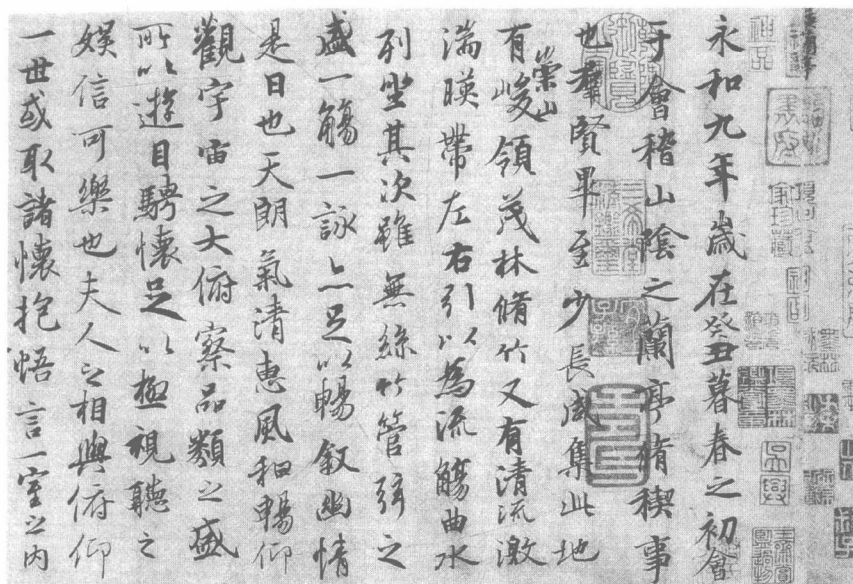 永和九年歲在癸丑暮春之初會
于會稽山陰之蘭亭脩稧事
也羣賢畢至少長咸集此地
有崇山峻領茂林脩竹又有清流激
湍暎帶左右引以為流觴曲水
列坐其次雖無絲竹管弦之
盛一觴一詠亦足以暢敘幽情
是日也天朗氣清惠風和暢仰
觀宇宙之大俯察品類之盛
所以遊目騁懷足以極視聽之
娛信可樂也夫人之相與俯仰
一世或取諸懷抱悟言一室之內
神品